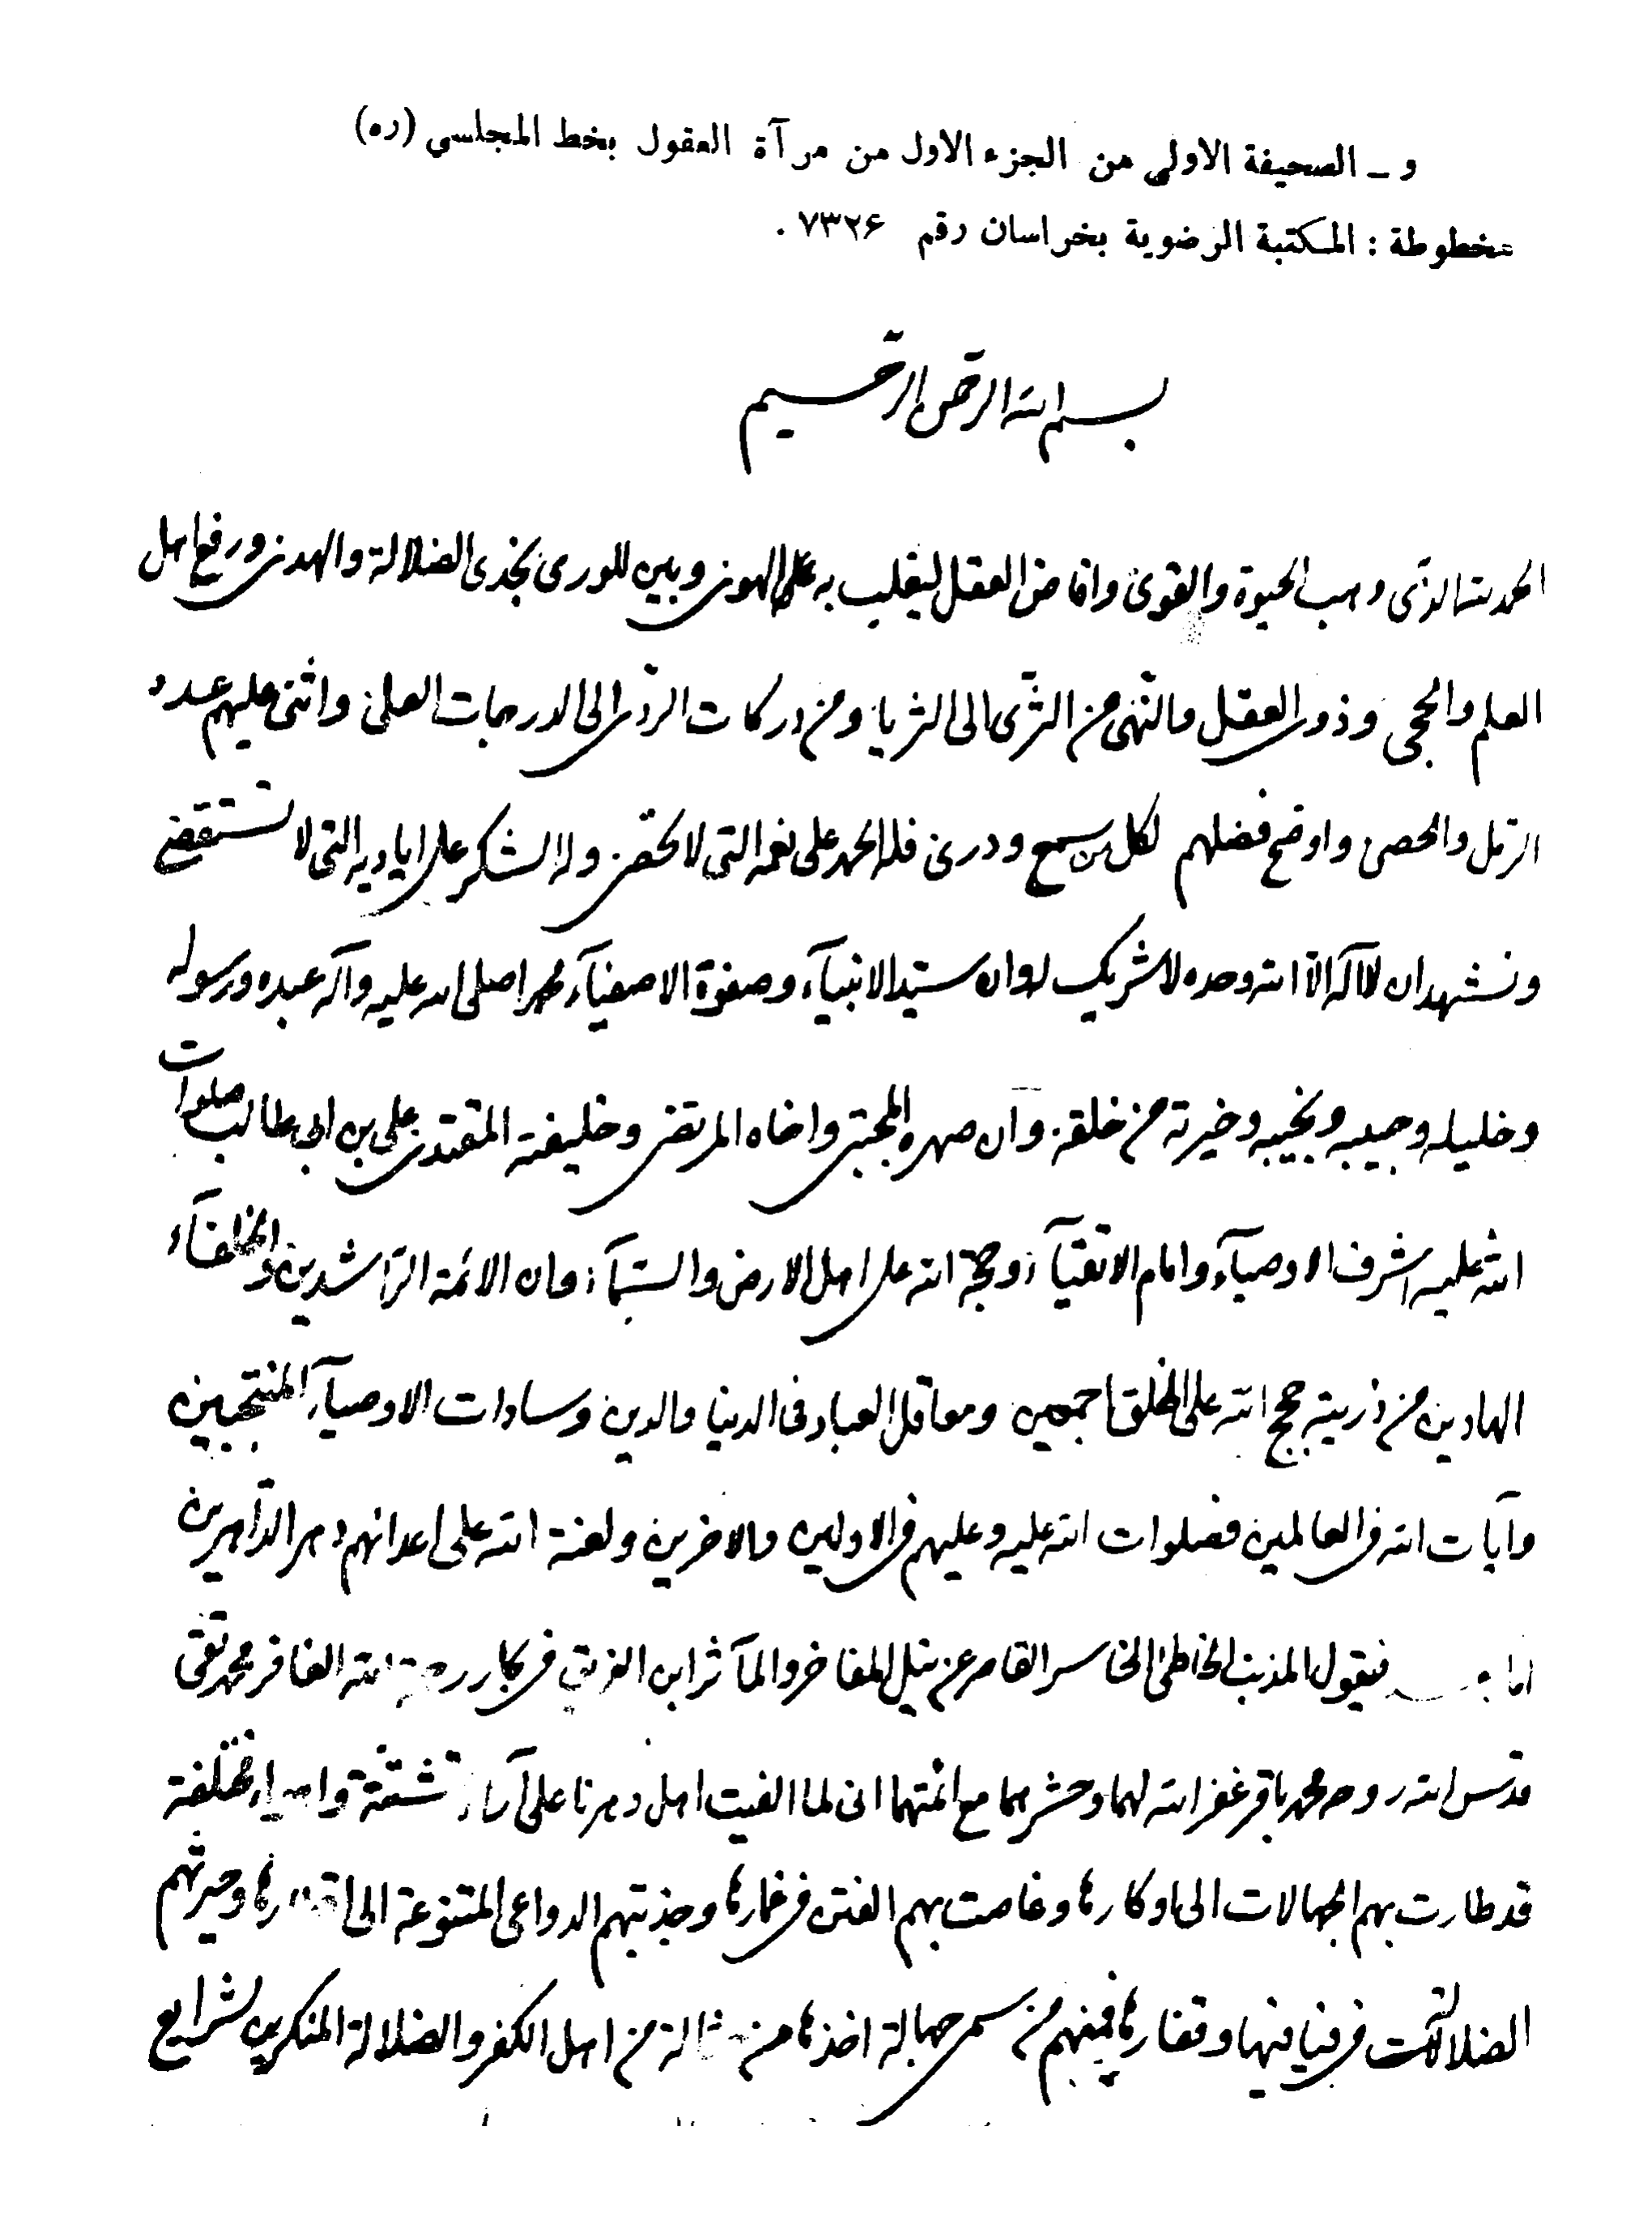 و ـ الصحيفة الاولى من الجزء الاول من مرآة العقول بخط المجلسي (ره)
مخطوطة : المكتبة الرضوية بخراسان رقم ۷۳۲۶ .
بسم الله الرحمن الرحيم
الحمد لله الذى وهب الحيوة والقوى وافاض العقل ليغلب به على الهوى وبين للورى نجدى الضلالة والهدى ورفع اهل
العلم والحجى وذوى العقل والنهى من الثرى الى الثريا ومن دركات الردى الى الدرجات العلى واثنى عليهم عدد
الرمل والحصى واوضح فضلهم لكل من سمع ودرى فله الحمد على نعمه التى لا تحصى وله الشكر على اياديه التى لا تستقصى
ونشهد ان لا اله الا الله وحده لا شريك له وان سيد الانبيآء وصفوة الاصفيآء محمدا صلى الله عليه وآله عبده ورسوله
وخليله وحبيبه ونجيبه وخيرته من خلقه وان صهره المجتبى واخاه المرتضى وخليفته المقتدى على بن ابى طالب صلوات
الله عليه اشرف الاوصيآء وامام الاتقيآء وحجة الله على اهل الارض والسمآء وان الائمة الراشدين والخلفآء
الهادين من ذريته حجج الله على الخلق اجمعين ومعاقل العباد فى الدنيا والدين وسادات الاوصيآء المنتجبين
وآيات الله فى العالمين فصلوات الله عليه وعليهم فى الاولين والاخرين ولعنة الله على اعدائهم دهر الداهرين
اما بعد فيقول المذنب الخاطئ الخاسر القاصر عن نيل المفاخر والمآثر ابن الغريق فى بحار رحمة الله الغافر محمد تقى
قدس الله روحه محمد باقر غفر الله لهما وحشرهما مع ائمتهما انى لما الفيت اهل دهرنا على آراء متشتتة واهواء مختلفة
قد طارت بهم الجهالات الى اوكارها وغاصت بهم الفتن فى غمارها وجذبتهم الدواعى المتنوعة الى اقطارها وحيرتهم
الضلالات فى فيافيها وقفارها فمنهم من سمى جهالة اخذها من حثالة من اهل الكفر والضلالة المنكرين لشرايع